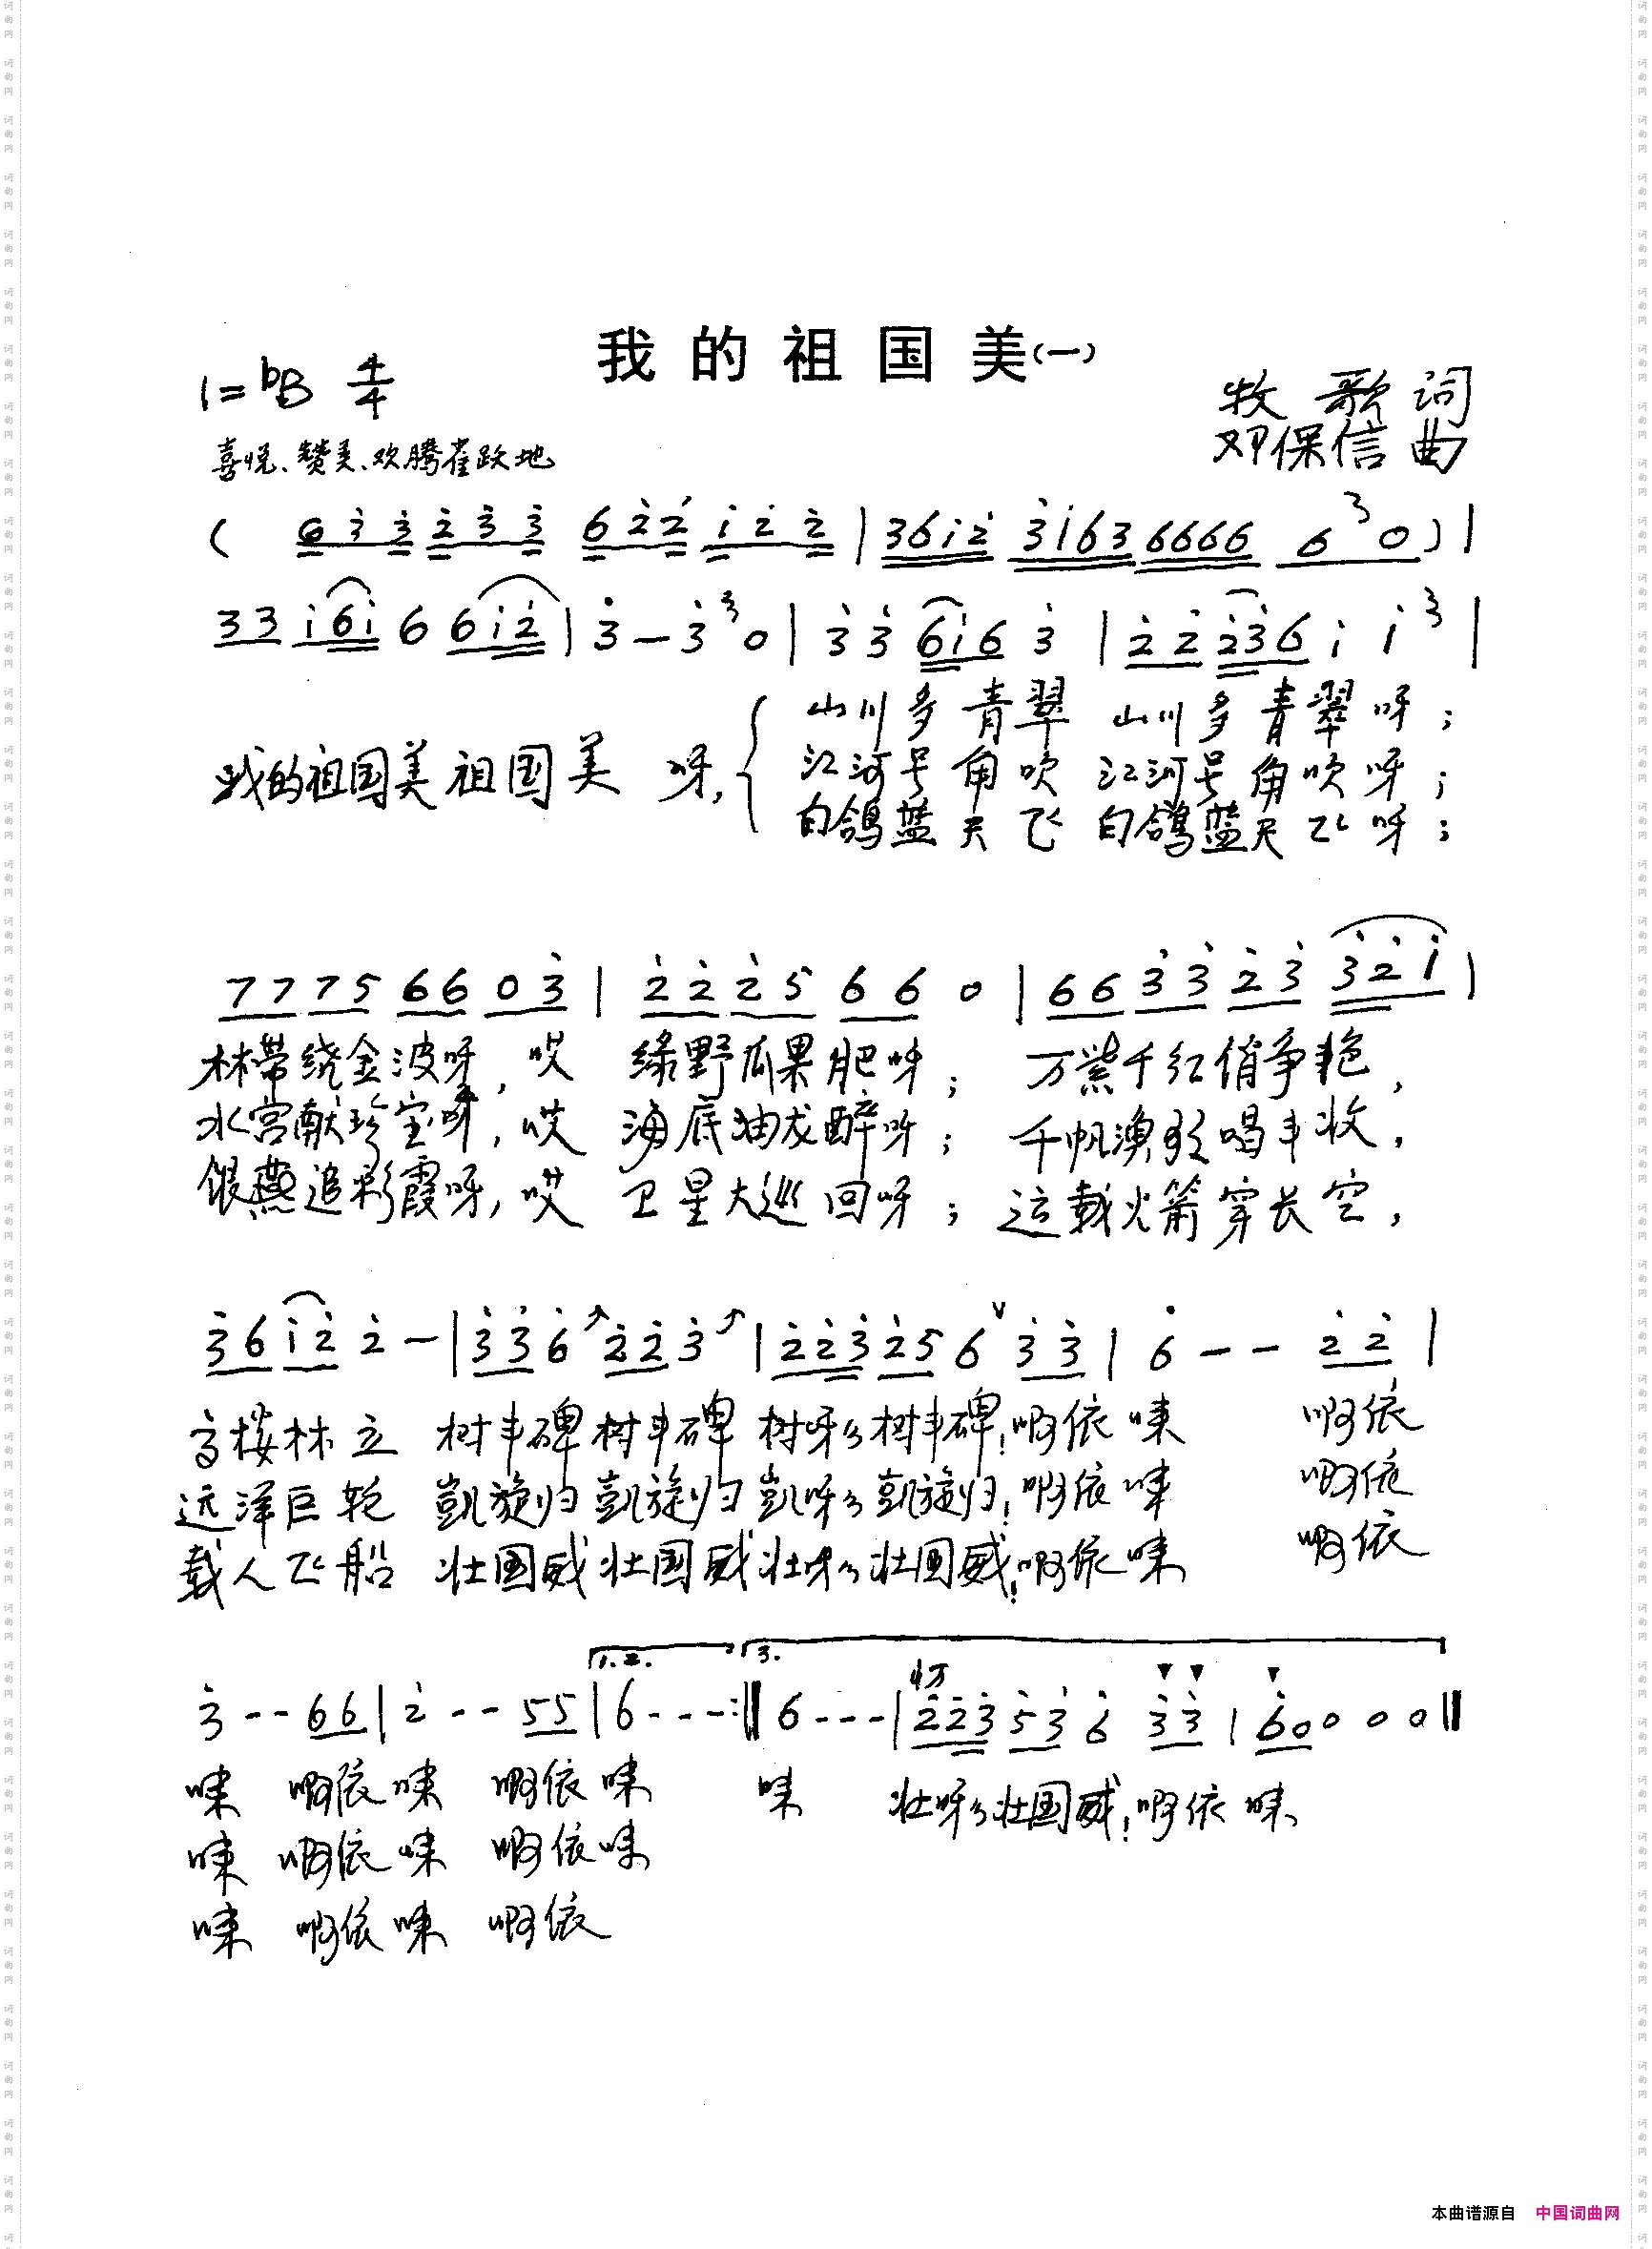 我的祖国美(一)
1=♭B 4/4
牧歌词
喜悦、赞美、欢腾雀跃地
邓保信曲
( 6 3 3 2 3 3 6 2 2 1 2 2 | 3 6 1 2 3 1 6 3 6 6 6 6 6 3 0 ) |
3 3 1 6 1 6 6 1 2 | 3 - 3 3 0 | 3 3 6 1 6 3 | 2 2 2 3 6 1 1 3 |
山川多青翠 山川多青翠呀;
我的祖国美祖国美 呀, 江河号角吹 江河号角吹呀;
白鸽蓝天飞 白鸽蓝天飞呀;
7 7 7 5 6 6 0 3 | 2 2 2 5 6 6 0 | 6 6 3 3 2 3 3 2 1 |
林带绕金波呀,哎 绿野瓜果肥呀; 万紫千红俏争艳,
水宫献珍宝呀,哎 海底油龙醉呀; 千帆渔歌唱丰收,
银燕追彩霞呀,哎 卫星大巡回呀; 运载火箭穿长空,
3 6 1 2 2 - | 3 3 6 2 2 3 | 2 2 3 2 5 6 ∨ 3 3 | 6 - - 2 2 |
高楼林立 树丰碑树丰碑 树呀々树丰碑!啊依唻 啊依
远洋巨轮 凯旋归凯旋归 凯呀々凯旋归!啊依唻 啊依
载人飞船 壮国威壮国威壮呀々壮国威!啊依唻 啊依
1. 2. 3.
3 - - 6 6 | 2 - - 5 5 | 6 - - - :‖ 6 - - - | 2 2 3 5 3 6 3 3 | 6 0 0 0 0 ‖
唻 啊依唻 啊依唻 唻 壮呀々壮国威!啊依唻
唻 啊依唻 啊依唻
唻 啊依唻 啊依
本曲谱源自 中国词曲网